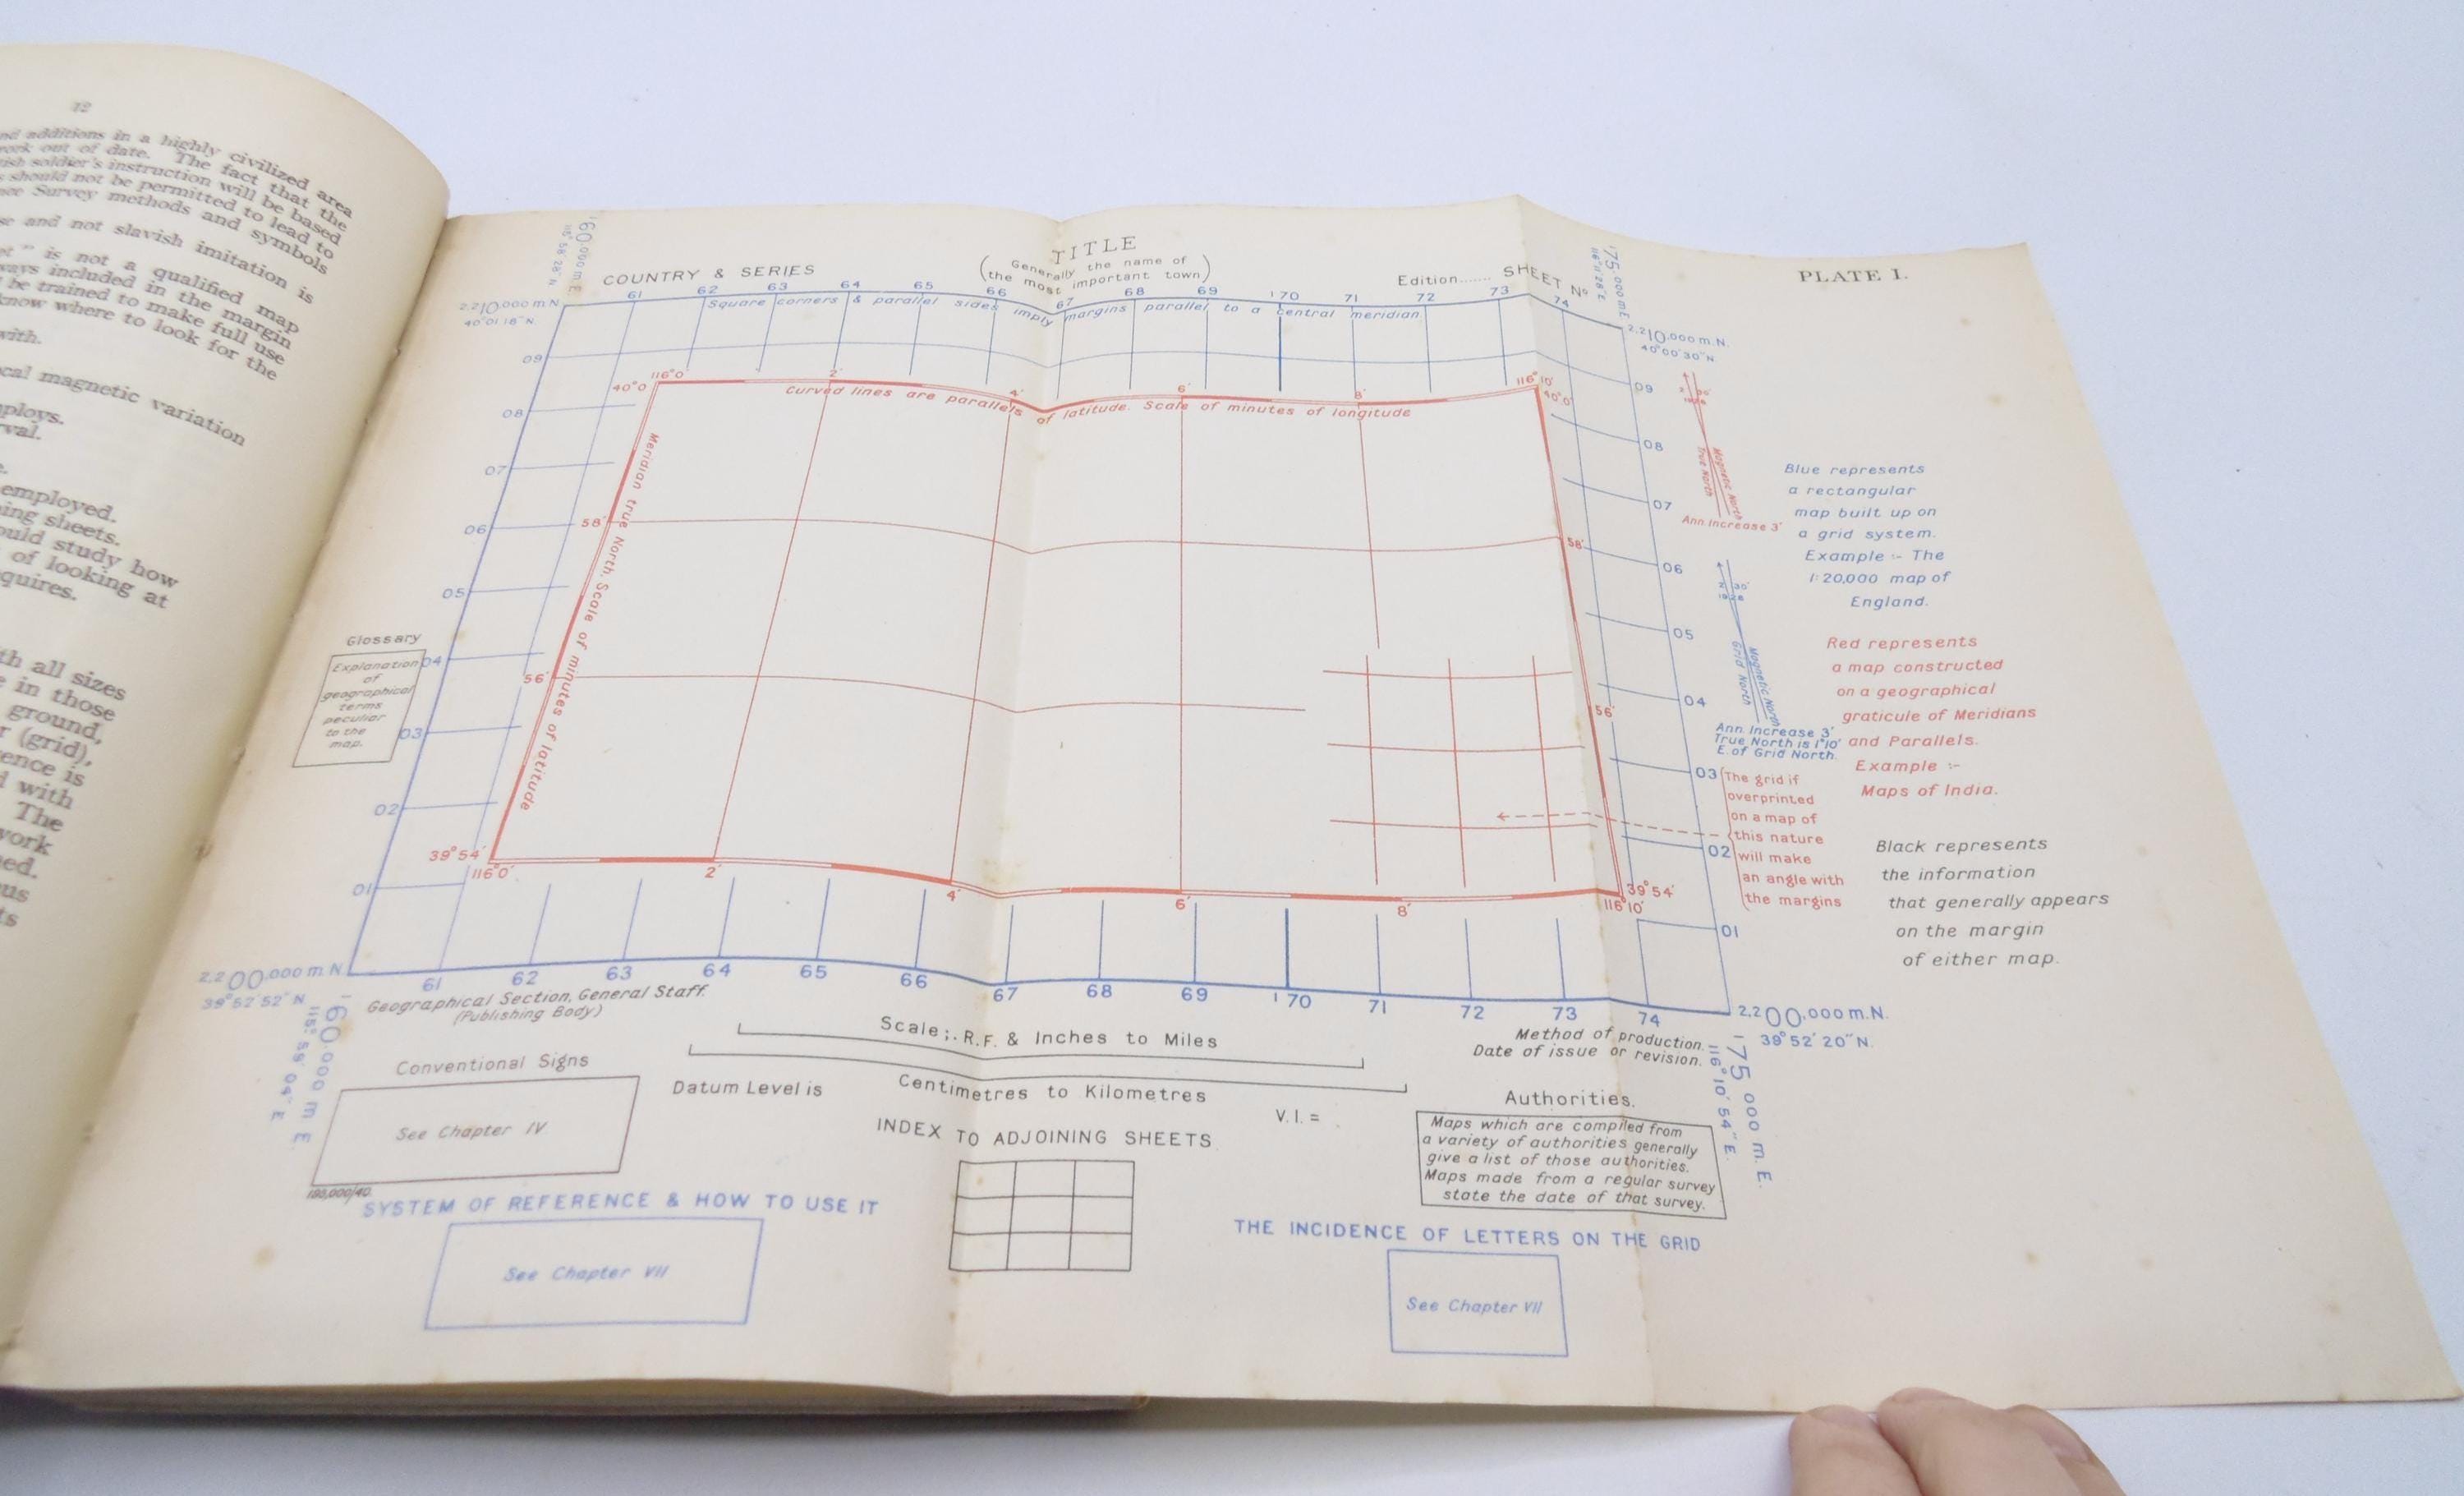 12
nd additions in a highly civilized area
work out of date. The fact that the
ish soldier's instruction will be based
should not be permitted to lead to
Survey methods and symbols
and not slavish imitation is
" is not a qualified map
ways included in the margin
be trained to make full use
know where to look for the
with.
cal magnetic variation
ploys.
val.
employed.
ing sheets.
ould study how
of looking at
quires.
th all sizes
in those
ground,
(grid),
ence is
with
The
work
ned.
PLATE I.
TITLE
(Generally the name of
the most important town)
COUNTRY & SERIES
Edition...... SHEET Nº
160,000 m E.
115° 58' 28" N
175,000 mE
116° 11' 28" E.
61 62 63 64 65 66 67 68 69 170 71 72 73 74
Square corners & parallel sides imply margins parallel to a central meridian
2,210,000 m.N
40° 01' 18" N.
2,210,000 m.N.
40° 00' 30" N.
09
08
07
06
05
04
03
02
01
116°0' 2' 4' 6' 8' 116°10'
40°0'
40°0'
Curved lines are parallels of latitude. Scale of minutes of longitude
Meridian true North. Scale of minutes of latitude
58'
56'
39°54'
116°0' 2' 4' 6' 8' 116°10'
58'
56'
39°54'
09
08
07
06
05
04
03
02
01
Glossary
Explanation
of
geographical
terms
peculiar
to the
map.
True North
Magnetic North
Ann. Increase 3'
Grid North
Magnetic North
Ann. Increase 3'
True North is 1°10'
E. of Grid North.
Blue represents
a rectangular
map built up on
a grid system.
Example :- The
1:20,000 map of
England.
Red represents
a map constructed
on a geographical
graticule of Meridians
and Parallels.
Example :-
Maps of India.
The grid if
overprinted
on a map of
this nature
will make
an angle with
the margins
Black represents
the information
that generally appears
on the margin
of either map.
2,200,000 m N
39° 52' 52" N
61 62 63 64 65 66 67 68 69 170 71 72 73 74
2,200,000 m.N.
39° 52' 20" N.
160,000 m E
115° 58' 04" E.
175,000 m. E.
116° 10' 54" E.
Geographical Section, General Staff.
(Publishing Body)
Scale;. R.F. & Inches to Miles
Method of production.
Date of issue or revision.
Centimetres to Kilometres
Conventional Signs
See Chapter IV
Datum Level is
V.I. =
INDEX TO ADJOINING SHEETS
Authorities.
Maps which are compiled from
a variety of authorities generally
give a list of those authorities.
Maps made from a regular survey
state the date of that survey.
SYSTEM OF REFERENCE & HOW TO USE IT
See Chapter VII
THE INCIDENCE OF LETTERS ON THE GRID
See Chapter VII